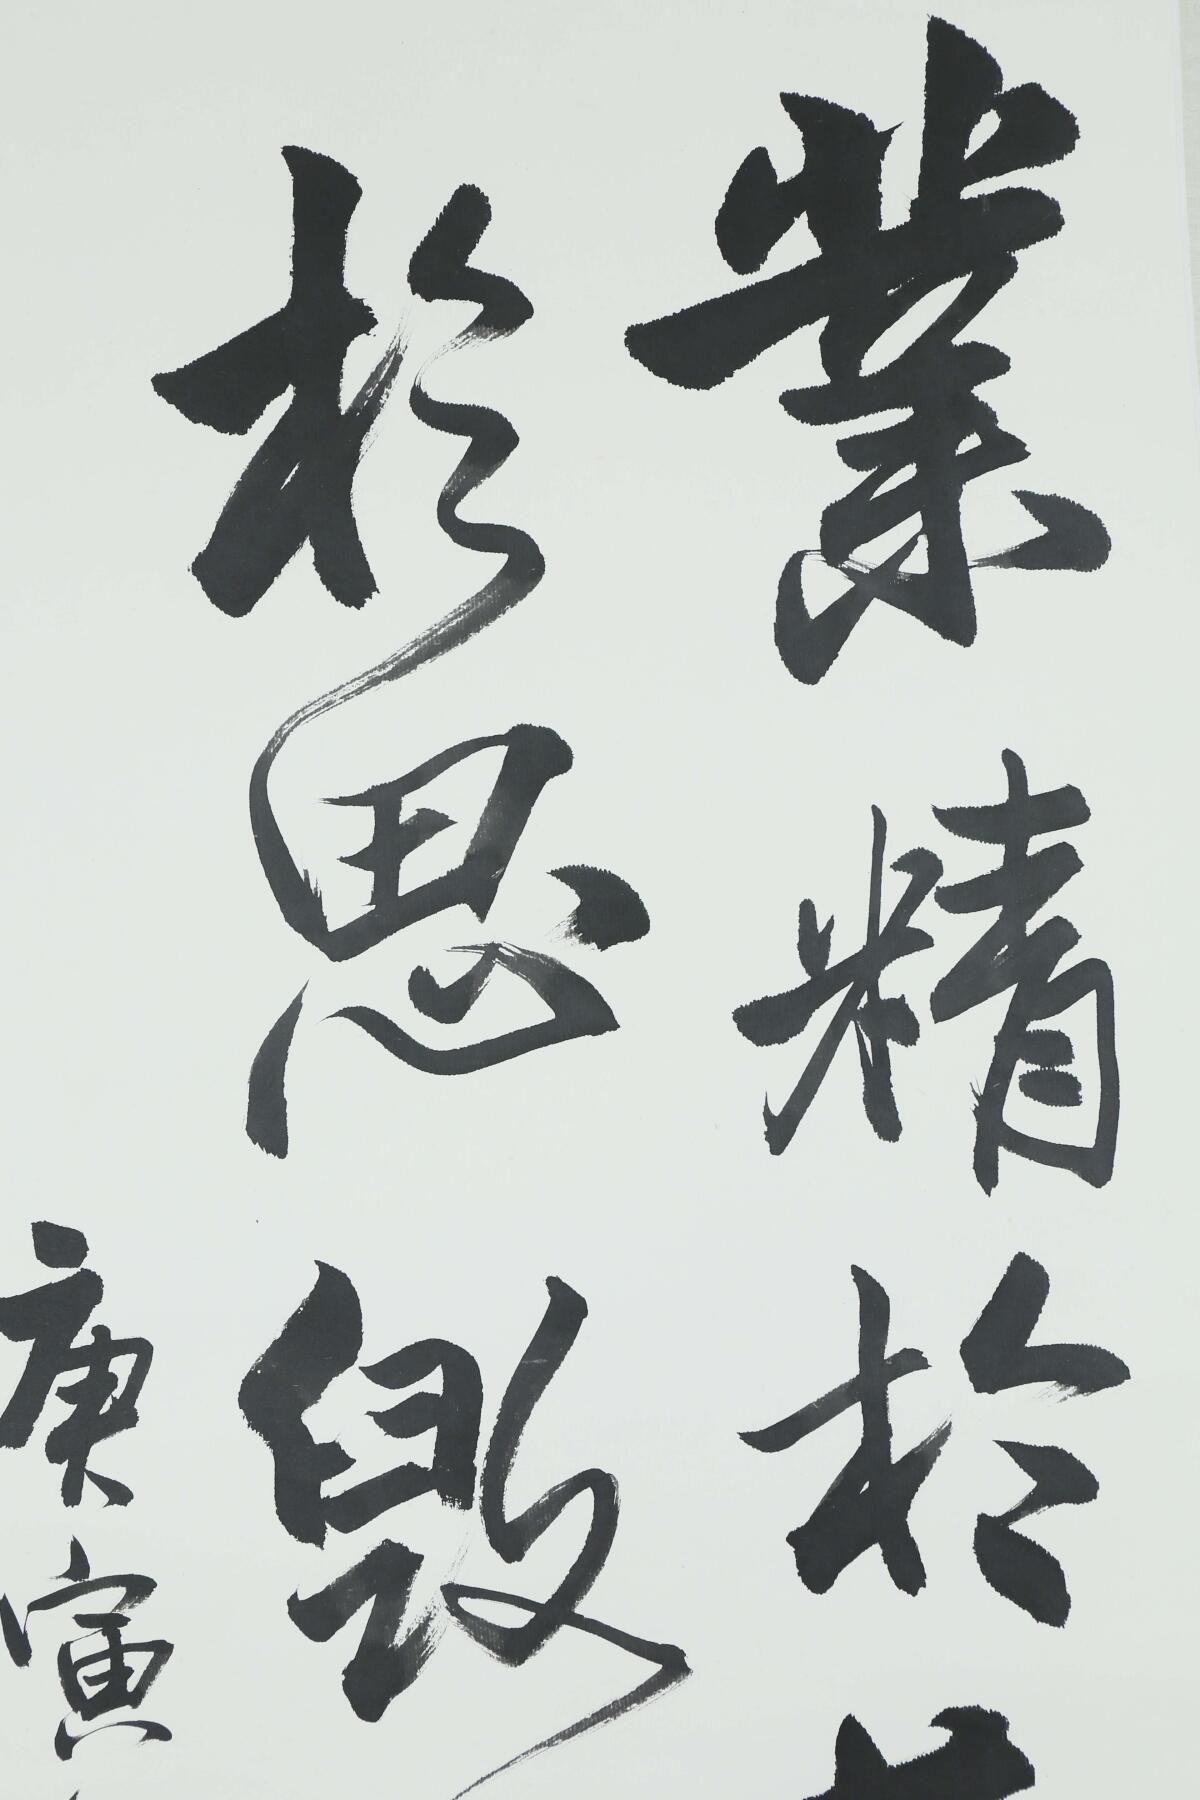 業精於
於思毀
庚寅